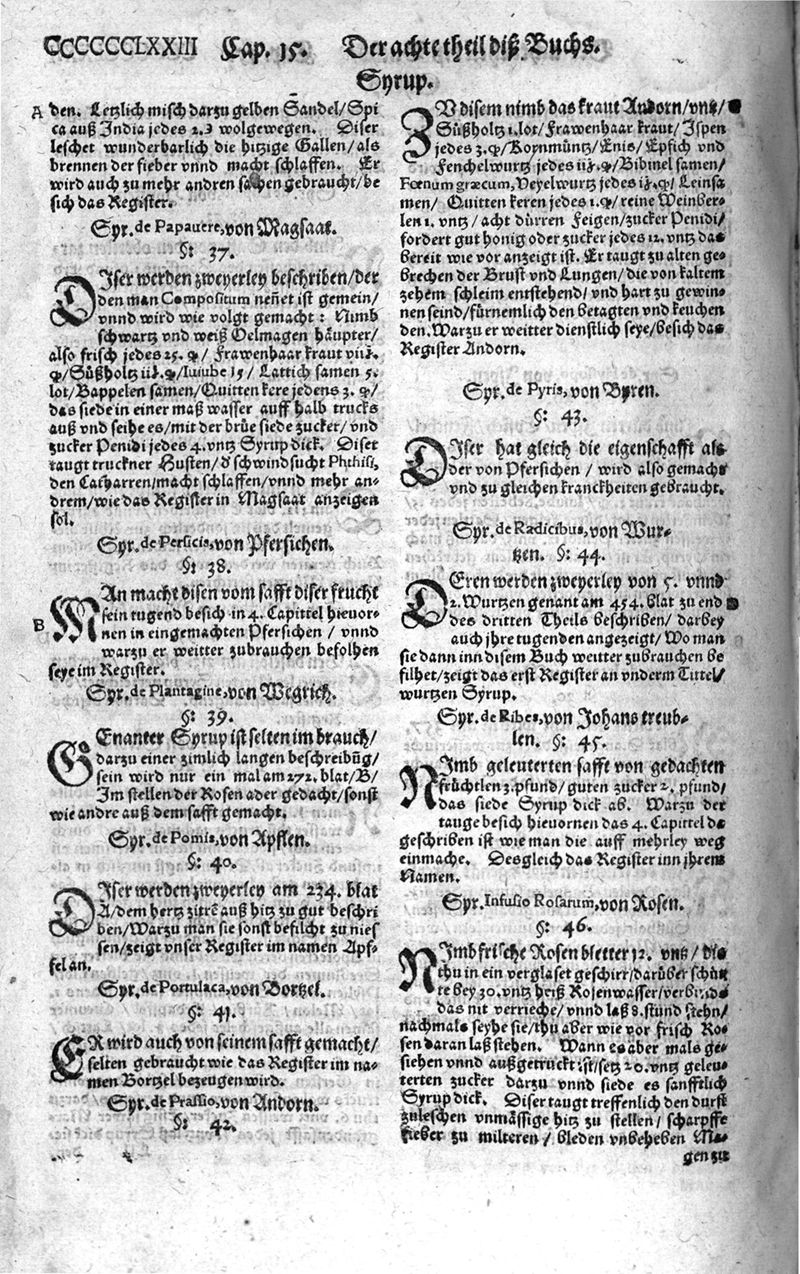 CCCCCCLXXIII Cap. 15. Der achte theil diß Buchs.
Syrup.
A den. Letzlich misch darzu gelben Sandel/Spi
ca auß India jedes 2.ʒ wolgewegen. Diser
leschet wunderbarlich die hitzige Gallen/als
brennen der fieber vnnd macht schlaffen. Er
wird auch zu mehr andren sachen gebraucht/be
sich das Register.
Syr. de Papauere, von Magsaat.
§: 37.
DIser werden zweyerley beschriben/der
den man Compositum neñet ist gemein/
vnnd wird wie volgt gemacht: Nimb
schwartz vnd weiß Oelmagen häupter/
also frisch jedes 25. / Frawenhaar kraut
Süßholtz /Iuiube 15/ Lattich samen 5.
lot/Bappelen samen/Quitten kere jedens 3.
das siede in einer maß wasser auff halb trucks
auß vnd seihe es/mit der brüe siede zucker/vnd
zucker Penidi jedes 4.vntz Syrup dick. Diser
taugt truckner Husten/ď schwindsucht Phthisi,
den Catharren/macht schlaffen/vnnd mehr an-
drem/wie das Register in Magsaat anzeigen
sol.
Syr. de Persicis, von Pfersichen.
§: 38.
MAn macht disen vom safft diser frucht
B sein tugend besich in 4. Capittel hieuor-
nen in eingemachten Pfersichen / vnnd
warzu er weitter zubrauchen befolhen
seye im Register.
Syr. de Plantagine, von Wegrich.
§: 39.
GEnanter Syrup ist selten im brauch/
darzu einer zimlich langen beschreibũg/
sein wird nur ein mal am 272. blat/B/
Im stellen der Rosen ader gedacht/sonst
wie andre auß dem safft gemacht.
Syr. de Pomis, von Apflen.
§: 40.
DIser werden zweyerley am 234. blat
A/dem hertz zitrē auß hitz zu gut beschri
ben/Warzu man sie sonst befilcht zu nies
sen/zeigt vnser Register im namen Apf-
fel an.
Syr. de Portulaca, von Bortzel.
§: 41.
ER wird auch von seinem safft gemacht/
selten gebraucht wie das Register im na-
men Bortzel bezeugen wird.
Syr. de Prassio, von Andorn.
§: 42.
ZV disem nimb das kraut Andorn/vntz/
Süßholtz 1.lot/Frawenhaar kraut/Ispen
jedes 3. /Roynmüntz/Enis/Epfich vnd
Fenchelwurtz jedes /Bibinel samen/
Fœnum græcum, Veyelwurtz jedes / Leinsa
men/ Quitten keren jedes 1. / reine Weinber-
len 1. vntz/acht dürren Feigen/zucker Penidi/
fordert gut honig oder zucker jedes 12. vntz das
bereit wie vor anzeigt ist. Er taugt zu alten ge-
brechen der Brust vnd Lungen/die von kaltem
zehem schleim entstehend/ vnd hart zu gewin-
nen seind/fürnemlich den betagten vnd keuchen
den. Warzu er weitter dienstlich seye/besich das
Register Andorn.
Syr. de Pyris, von Byren.
§: 43.
DIser hat gleich die eigenschafft als
der von Pfersichen / wird also gemacht
vnd zu gleichen kranckheiten gebraucht.
Syr. de Radicibus, von Wur-
tzen. §: 44.
DEren werden zweyerley von 5. vnnd
2. Wurtzen genant am 454. blat zu end
des dritten Theils beschriben/ darbey
auch jhre tugenden angezeigt/Wo man
sie dann inn disem Buch weitter zubrauchen be
filhet/zeigt das erst Register an vnderm Tittel/
wurtzen Syrup.
Syr. de Ribes, von Johans treub-
len. §: 45.
NImb geleuterten safft von gedachten
früchtlen 3.pfund/guten zucker 2. pfund/
das siede Syrup dick ab. Warzu der
tauge besich hieuornen das 4. Capittel da
geschriben ist wie man die auff mehrley weg
einmache. Desgleich das Register inn jhrem
Namen.
Syr. Infusio Rosarum, von Rosen.
§: 46.
NImb frische Rosen bletter 12. vntz/ die
thu in ein verglåset geschirr/darüber schüt
te bey 30.vntz heiß Rosenwasser/verbinds
das nit verrieche/vnnd laß 8. stund stehn/
nachmals seyhe sie/thu aber wie vor frisch Ro-
sen daran laß stehen. Wann es aber mals ge-
siehen vnnd außgetruckt ist/setz 20.vntz geleu-
terten zucker darzu vnnd siede es sanfftlich
Syrup dick. Diser taugt treffenlich den durst
zuleschen vnmässige hitz zu stellen/ scharpffe
fieber zu milteren/ bleden vnbeheben Ma-
gen zu